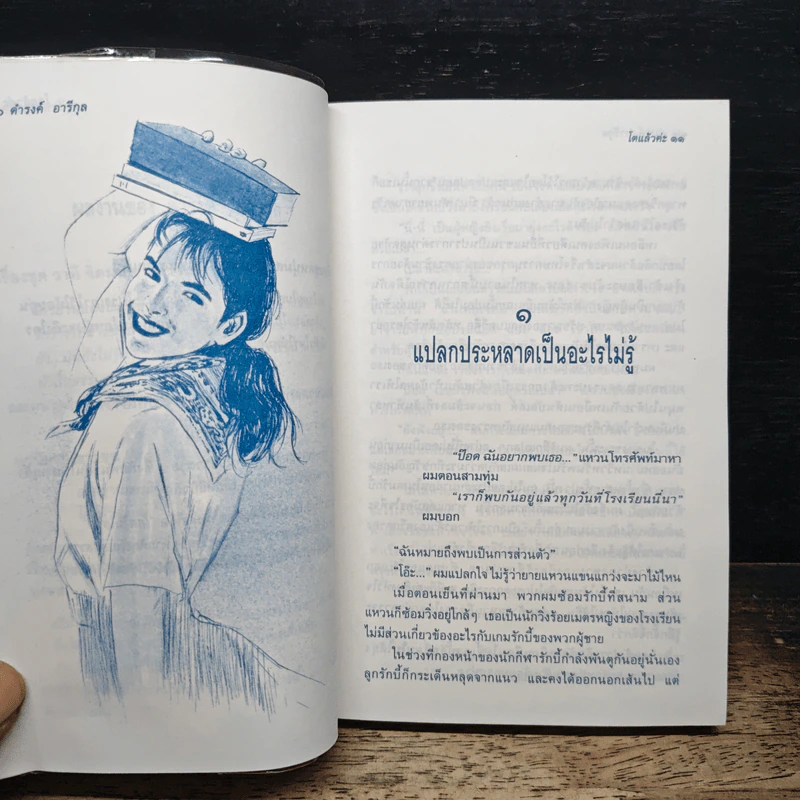 ดำรงค์ อารีกุล
โตแล้วค่ะ ๑๑
๑
แปลกประหลาดเป็นอะไรไม่รู้
"ป๊อด ฉันอยากพบเธอ..." แหวนโทรศัพท์มาหา
ผมตอนสามทุ่ม
"เราก็พบกันอยู่แล้วทุกวันที่โรงเรียนนี่นา"
ผมบอก
"ฉันหมายถึงพบเป็นการส่วนตัว"
"โอ๊ะ..." ผมแปลกใจ ไม่รู้ว่ายายแหวนแขนแกว่งจะมาไม้ไหน
เมื่อตอนเย็นที่ผ่านมา พวกผมซ้อมรักบี้ที่สนาม ส่วน
แหวนก็ซ้อมวิ่งอยู่ใกล้ๆ เธอเป็นนักวิ่งร้อยเมตรหญิงของโรงเรียน
ไม่มีส่วนเกี่ยวข้องอะไรกับเกมรักบี้ของพวกผู้ชาย
ในช่วงที่กองหน้าของนักกีฬารักบี้กำลังพันตูกันอยู่นั่นเอง
ลูกรักบี้ก็กระเด็นหลุดจากแนว และคงได้ออกนอกเส้นไป แต่